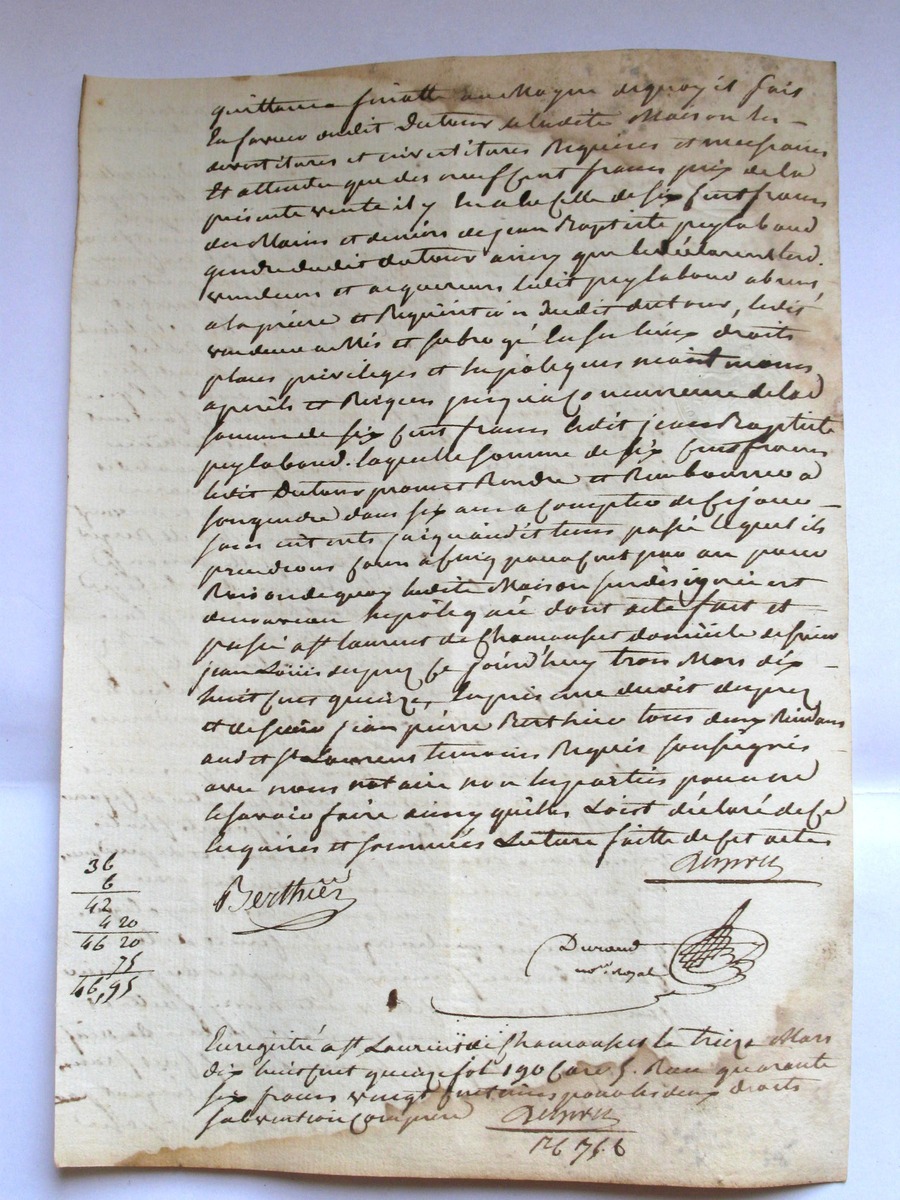 quittance finalle au Moyen de quoy il fait
En faveur dudit Dutour de ladite Maison les
devestitures et investitures Requises et necessaires
Et attendu que des neuf Cent francs prix de la
presente vente il y En a Celle de six Cent francs
des Mains et deniers de jean Baptiste peylaboud
gendre dudit dutour ainsy que le déclarent led.
vendeur et acquereur ledit peylaboud
a la prière et Requisition dudit dutour, ledit
vendeur a Mis et subrogé En ses lieux droits
places privileges et hypotèques neant moins
a perils et Risques jusqu'a Concurrence de lad
somme de six Cent francs ledit jean Baptiste
peylaboud. laquelle somme de six Cent francs
ledit Dutour promet Rendre et Rembourcer a
son gendre dans six ans a Compter de Ce jour
sans intérêts jusqu'audit tems passé lequel ils
prendrons Cours a Cinq pour Cent par an pour
Raison de quoy ladite Maison sus désignée est
de nouveau hypotéquée dont acte fait et
passé a St laurent de Chamousset domicile de sieur
jean Loüis duprez Ce jourd'huy trois Mars dix
huit Cent quinze, En présence dudit duprez
et de sieur jean pierre Berthier tous deux Residans
audit St Laurent temoins Requis soussignés
avec nous notaire non les parties pour ne
le savoir faire ainsy qu'elles L'ont déclaré de Ce
Enquises et sommées Lecture faitte de Cet acte
36
6
42
4 20
46 20
75
46,95
Berthier
Duprez
Durand
nore Royal
Enregistré a St Laurent de Chamousset le treize Mars
dix huit Cent quinze fol 190 Case 5. Reçu quarante
six francs vingt Centimes pour les deux droits
subvention Comprise Duprez